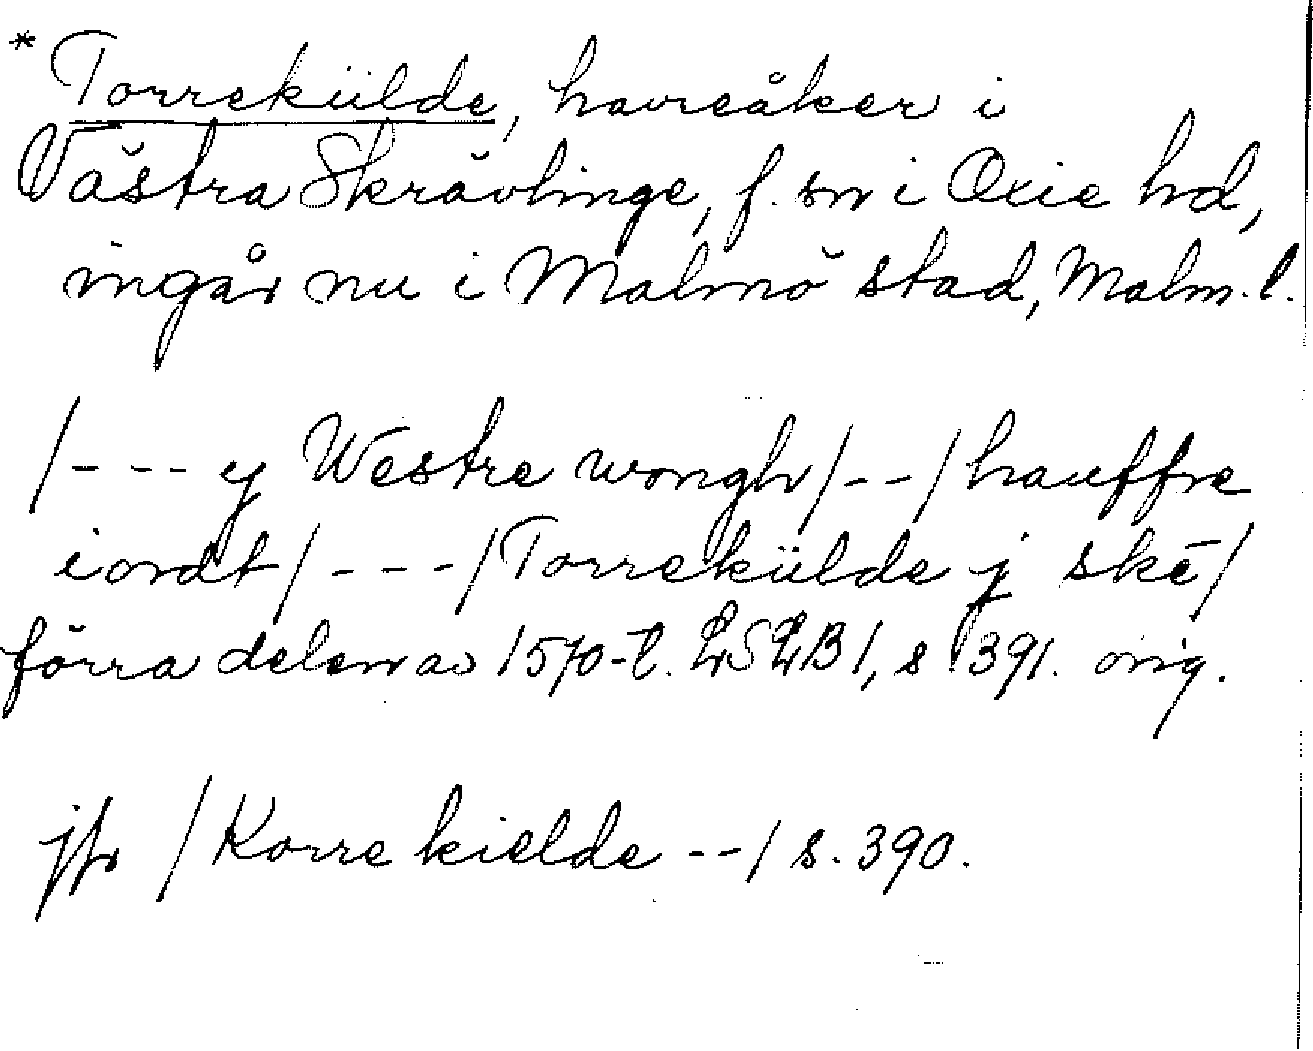 * Torrekülde, havreåker i
Västra Skrävlinge, f. sn i Oxie hd,
ingår nu i Malmö stad, Malm. l.
/--- y Westre wongh/--/hauffre
iordt/---/Torrekülde j skē/
förra delen av 1570-t. LSLB1, s 391. orig.
jfr /Korre kielde --/ s. 390.